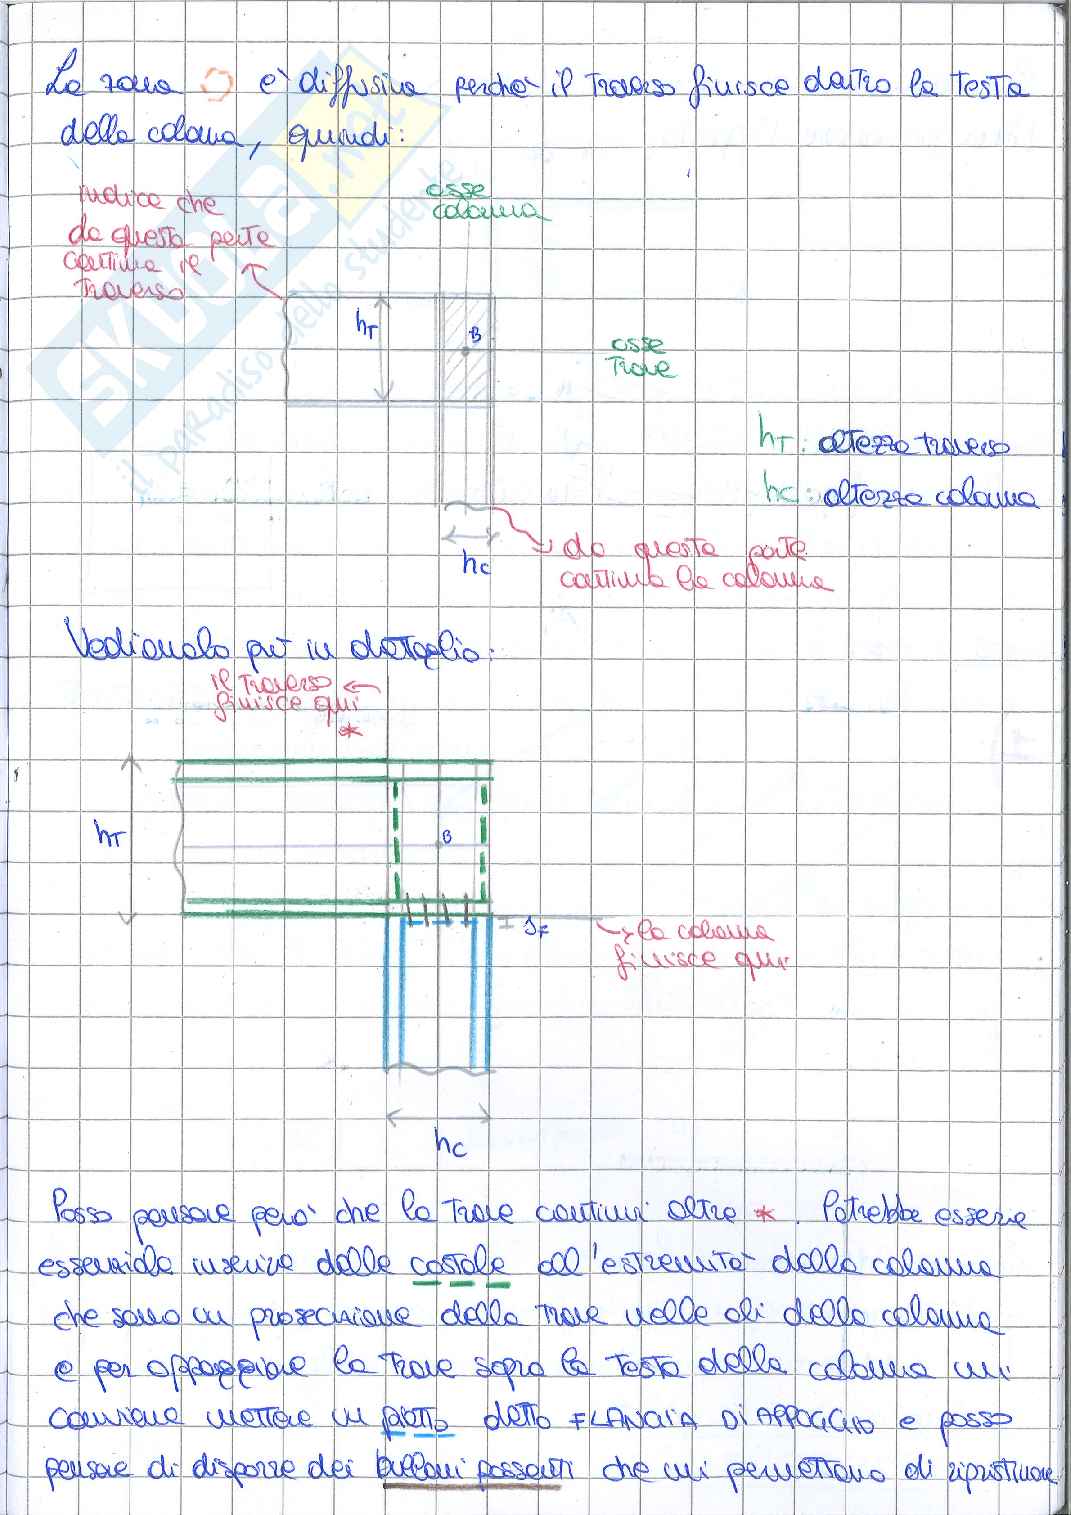 La zona è diffusiva perchè il traverso finisce dentro la testa
della colonna, quindi:
indica che
da questa parte
continua il
traverso
asse
colonna
hT
B
asse
Trave
hT: altezza traverso
hc: altezza colonna
hc
da questa parte
continua la colonna
Vediamolo più in dettaglio:
il traverso
finisce qui
*
hT
B
sF
la colonna
finisce qui
hc
Posso pensare però che la trave continui oltre *. Potrebbe essere
essenziale inserire delle costole all'estremità della colonna
che sono in prosecuzione della trave nelle ali della colonna
e per appoggiare la trave sopra la testa della colonna mi
conviene mettere un piatto detto FLANGIA DI APPOGGIO e posso
pensare di disporre dei bulloni passanti che mi permettano di ripristinare
SKUOLA.net
il paradiso dello studente